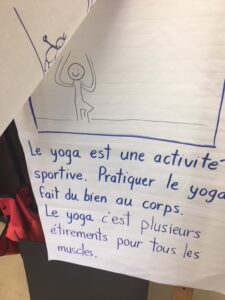 Le yoga est une activité
sportive. Pratiquer le yoga
fait du bien au corps.
Le yoga c'est plusieurs
étirements pour tous les
muscles.